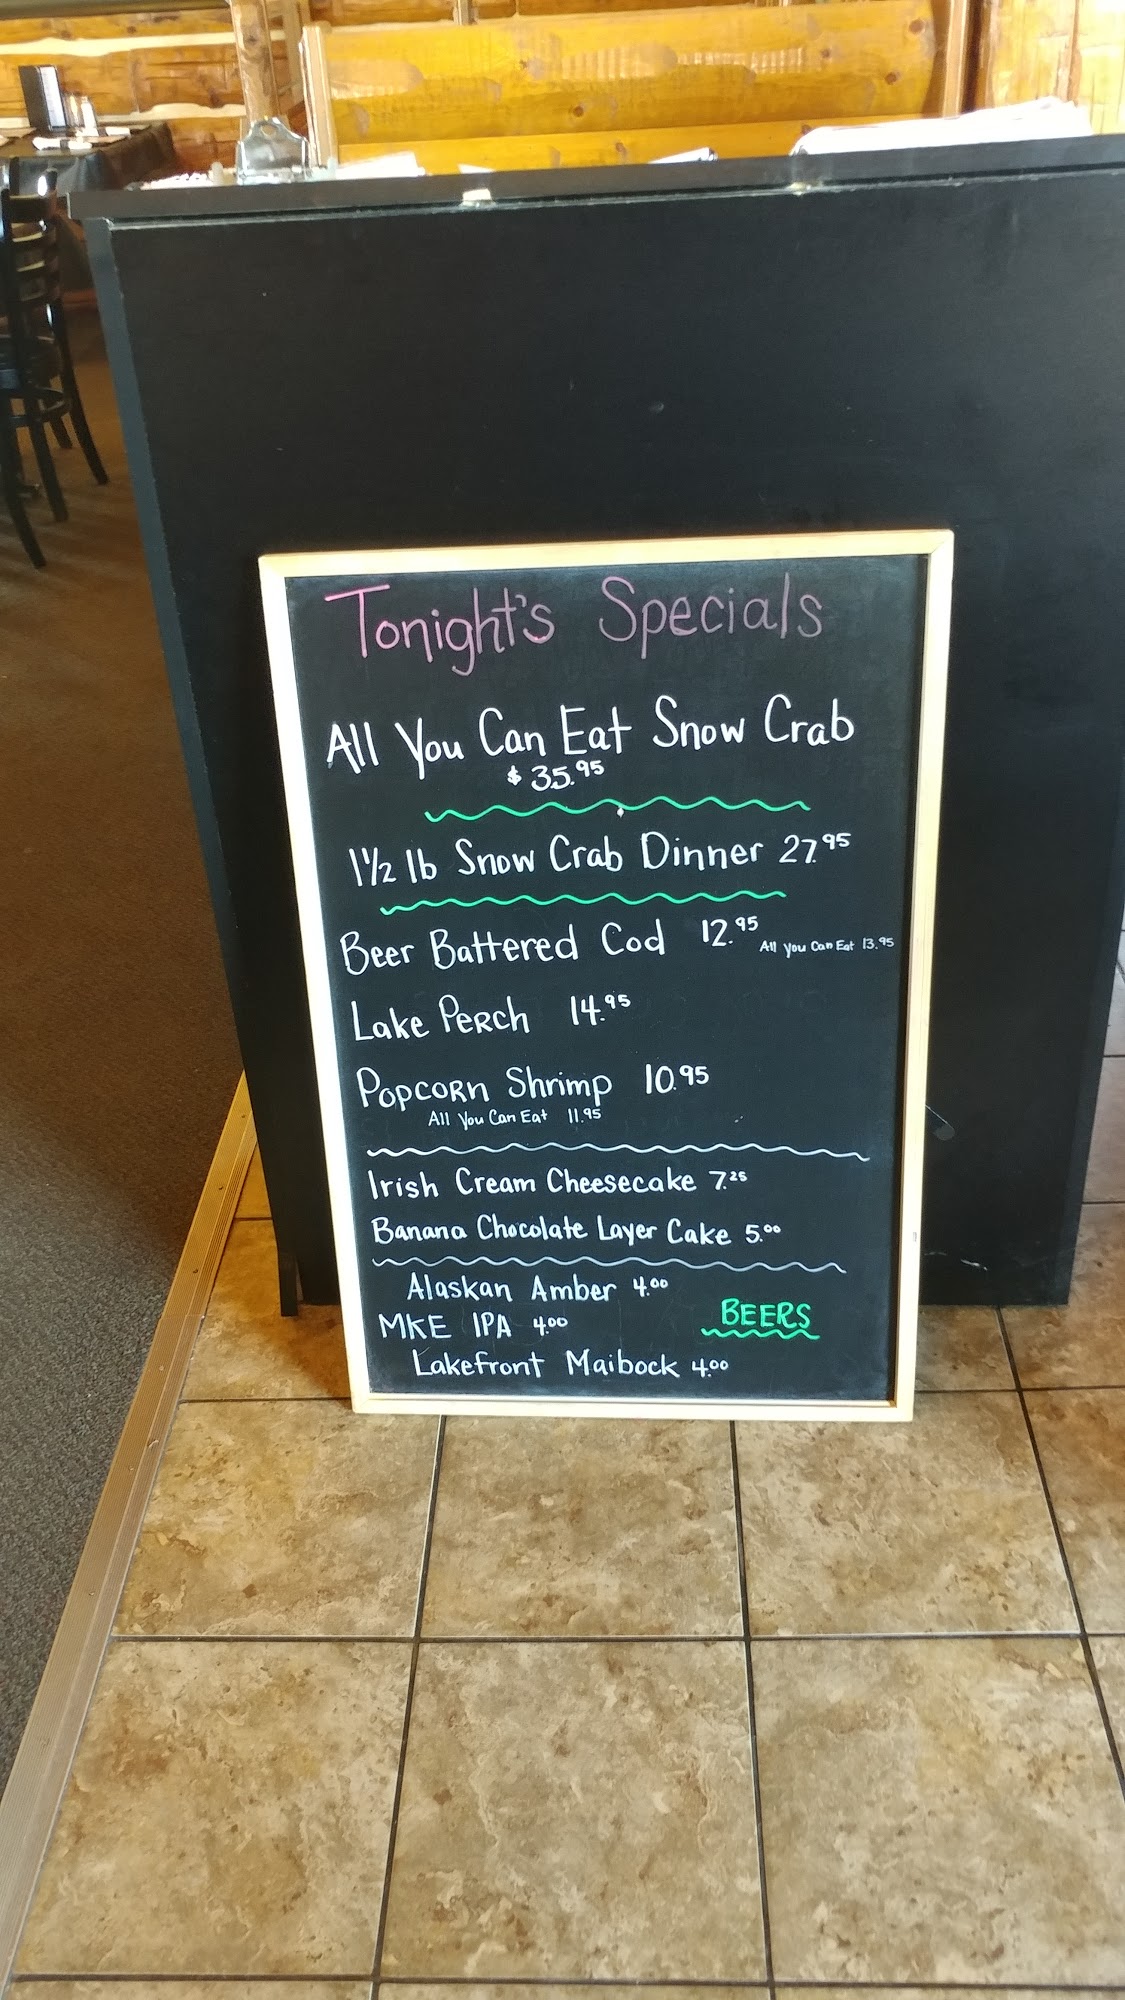 Tonight's Specials
All You Can Eat Snow Crab
$ 35.95
1 1/2 lb Snow Crab Dinner 27.95
Beer Battered Cod 12.95 All You Can Eat 13.95
Lake Perch 14.95
Popcorn Shrimp 10.95
All You Can Eat 11.95
Irish Cream Cheesecake 7.25
Banana Chocolate Layer Cake 5.00
Alaskan Amber 4.00
MKE IPA 4.00 BEERS
Lakefront Maibock 4.00